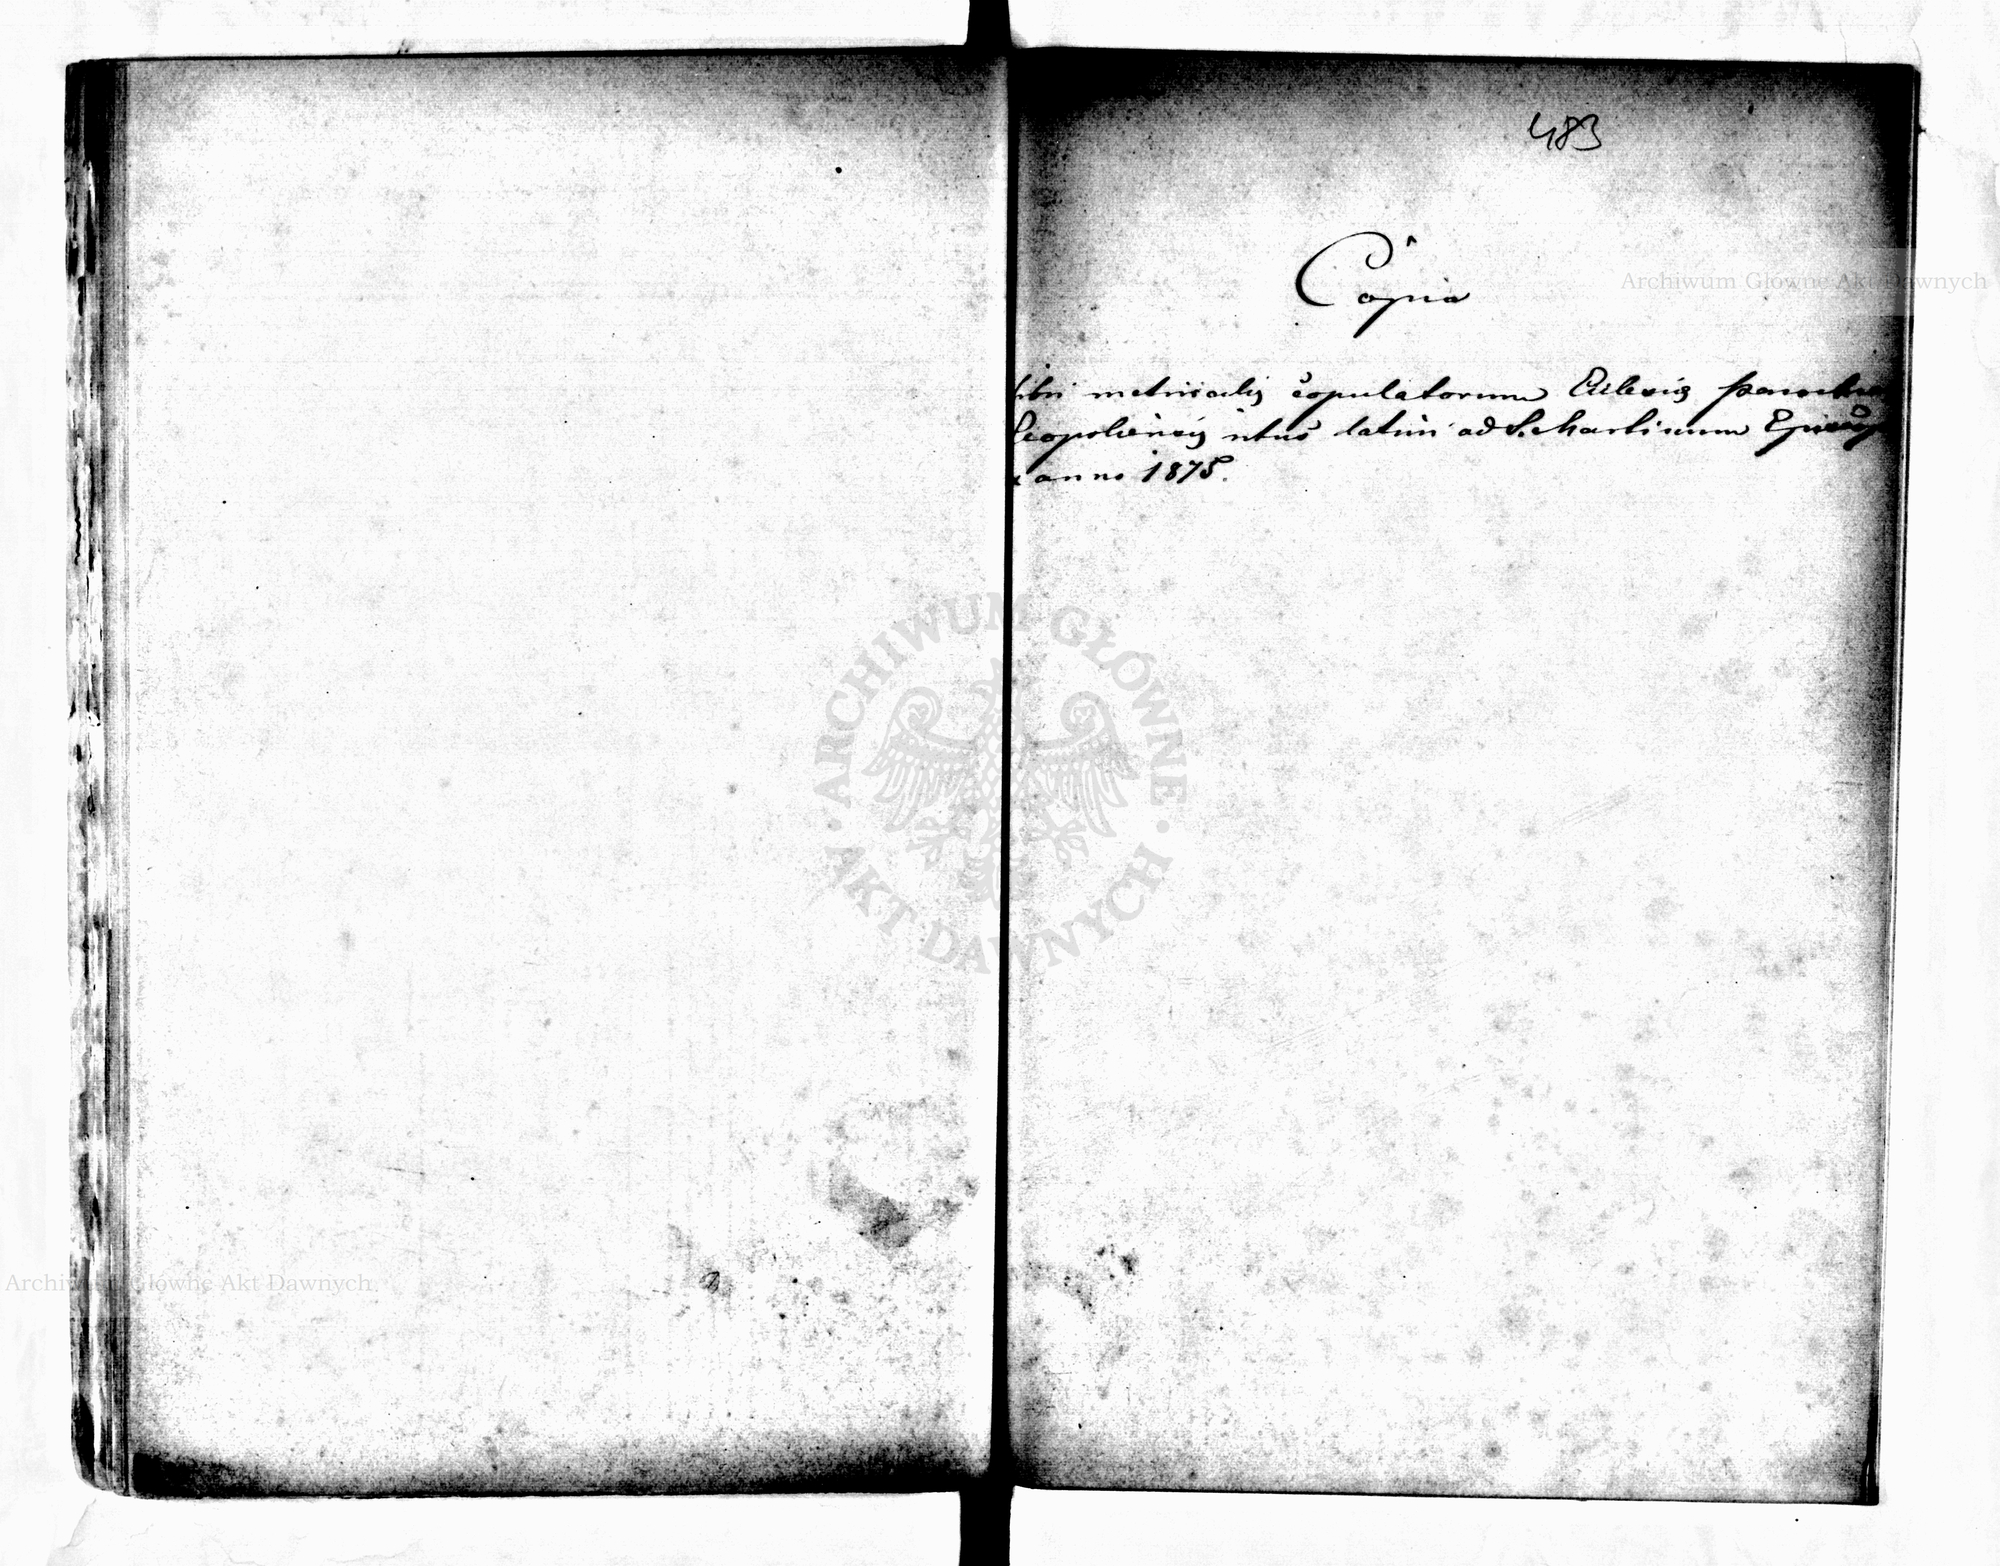 483
Copia
libri metricalis copulatorum Ecclesiae
Leopoliensis ritus latini ad S. Martinum
anno 1875.
Archiwum Główne Akt Dawnych
ARCHIWUM GŁÓWNE AKT DAWNYCH
Archiwum Główne Akt Dawnych